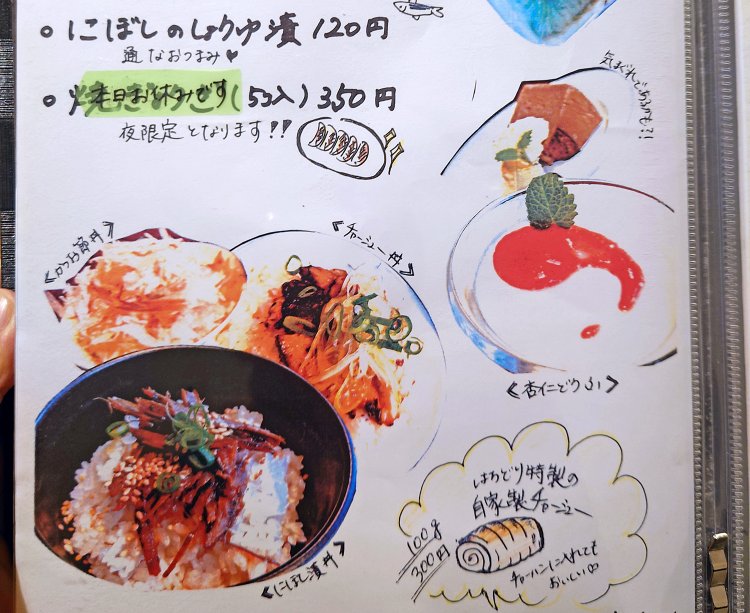 にぼしのしょうゆ漬 120円
通なおつまみ♥
本日お休みです(5コ入) 350円
夜限定となります!!
気まぐれであるかも!?
《かつお節丼》
《チャーシュー丼》
《杏仁どうふ》
《にぼし漬丼》
特製の
自家製チャーシュー
100g
300円
チャーハンに入れても
おいしい♡